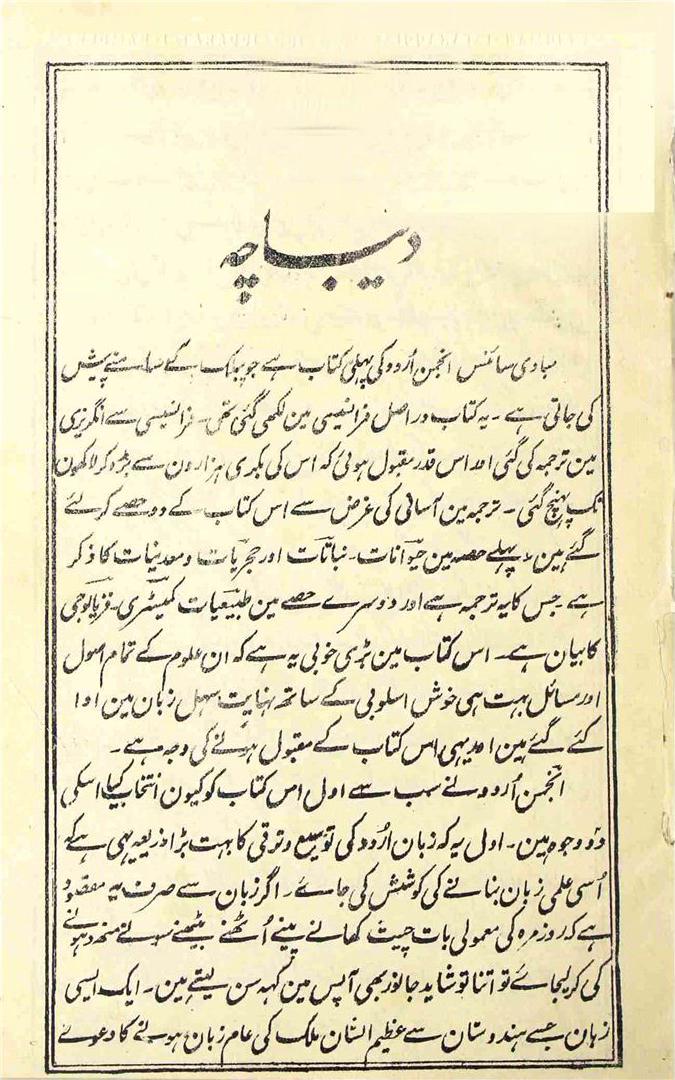 دیباچہ
مبادی سائنس انجمن اُردو کی پہلی کتاب ہے جو پبلک کے سامنے پیش
کی جاتی ہے ۔ یہ کتاب در اصل فرانسیسی مین لکھی گئی تھی ۔ فرانسیسی سے انگریزی
مین ترجمہ کی گئی اور اس قدر مقبول ہوئی کہ اس کی بکری ہزارون سے بڑہ کر لاکھون
تک پہنچ گئی ۔ ترجمہ مین آسانی کی غرض سے اس کتاب کے دو حصے کر لئے
گئے ہین ۔ پہلے حصہ مین حیوانات ۔ نباتات اور حجریات و معدنیات کا ذکر
ہے ۔ جس کا یہ ترجمہ ہے اور دوسرے حصے مین طبیعیات کمیسٹری ۔ فزیالوجی
کا بیان ہے ۔ اس کتاب مین بڑی خوبی یہ ہے کہ ان علوم کے تمام اصول
اور مسائل بہت ہی خوش اسلوبی کے ساتھ نہایت سہل زبان مین ادا
کئے گئے ہین اور یہی اس کتاب کے مقبول ہونے کی وجہ ہے ۔
انجمن اُردو نے سب سے اول اس کتاب کو کیون انتخاب کیا اسکی
دو وجوہ ہین ۔ اول یہ کہ زبان اُردو کی توسیع و ترقی کا بہت بڑا ذریعہ یہی ہے کہ
اُسی علمی زبان بنانے کی کوشش کی جائے ۔ اگر زبان سے صرف یہ مقصود
ہے کہ روز مرہ کی معمولی بات چیت کھانے پینے اُٹھنے بیٹھنے سونے منھ دہونے
کی کر لیجائے تو اتنا تو شاید جانور بھی آپس مین کہہ سن لیتے ہین ۔ ایک ایسی
زبان جسے ہندوستان سے عظیم الشان ملک کی عام زبان ہونے کا دعوے